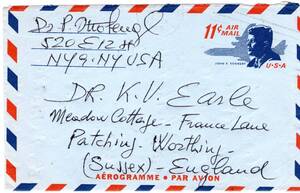 Dr P.
520 E 12 St
NY 9. NY USA
11¢ AIR
MAIL
JOHN F. KENNEDY
U·S·A
DR. K. V. Earle
Meadow Cottage - France Lane
Patching - Worthing -
(Sussex) - England
AÉROGRAMME • PAR AVION